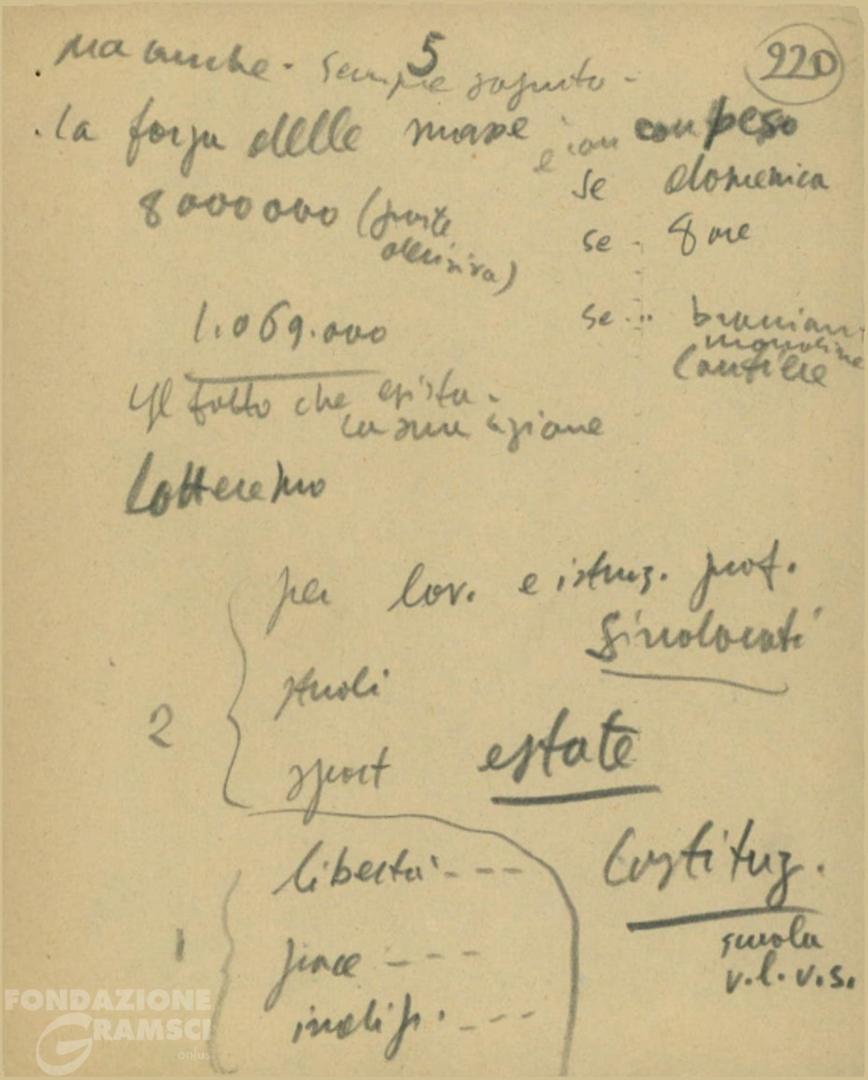 5
220
. Ma anche - sempre
. la forza delle masse e con peso
8000000 (parte decisiva)
se domenica
se - 8 ore
1.069.000
se ...
cantiere
Il fatto che esista -
la sua azione
Lotteremo
per lav. e istruz. prof.
Sindacati
2
studi
sport estate
libertà - - -
Costituz.
1
scuola
v.l.v.s.
pace - - -
indip. - - -
FONDAZIONE
GRAMSCI
onlus